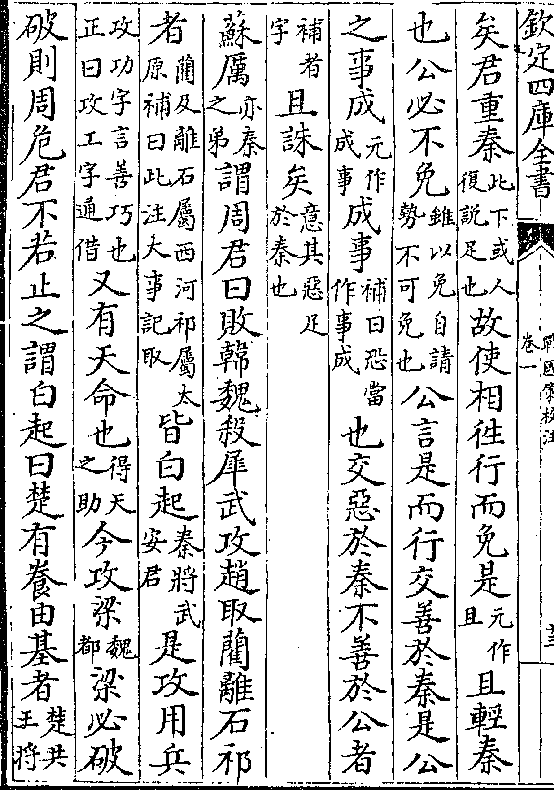 欽定四庫全書
戰國策校注
卷一
矣君重秦此下或人復說足也故使相往行而免是元作且且輕秦
也公必不免雖以免自請勢不可免也公言是而行交善於秦是公
之事成元作成事成事補曰恐當作事成也交惡於秦不善於公者
補者字且誅矣意其惡足於秦也
蘇厲亦秦之弟謂周君曰敗韓魏殺犀武攻趙取藺離石祁
者藺及離石屬西河祁屬太原補曰此注大事記取皆白起秦將武安君是攻用兵
攻功字言善巧也正曰攻工字通借又有天命也得天之助今攻梁魏都梁必破
破則周危君不若止之謂白起曰楚有養由基者楚共王將